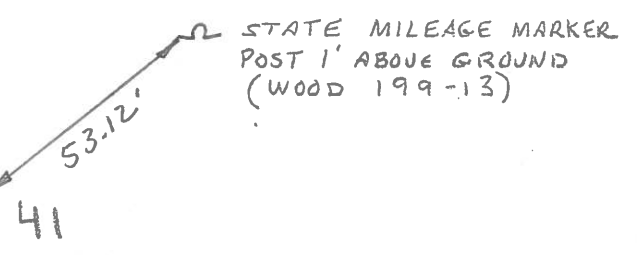 STATE MILEAGE MARKER
POST 1' ABOVE GROUND
(WOOD 199-13)
53.12'
41